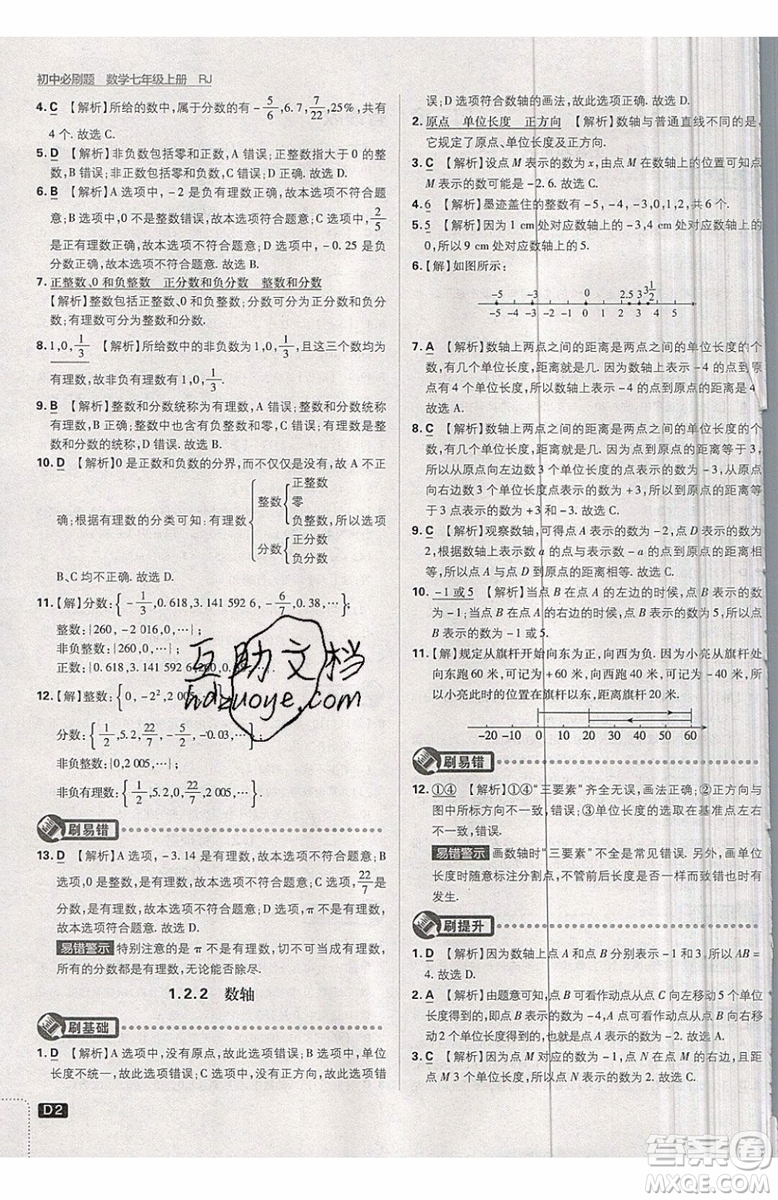 初中必刷题 数学七年级上册 RJ
4. C 【解析】所给的数中,属于分数的有 -5/6,6.7,7/22,25%,共有
4 个. 故选 C.
5. D 【解析】非负数包括零和正数,A 错误;正整数指大于 0 的
6. B 【解析】A 选项中,-2 是负整数正确,故本选项不符合
题意;B 选项中,0 不是整数错误,故本选项符合题意;C 选项中,2/5
是正有理数正确,故本选项不符合题意;D 选项中,-0.25 是负分
数正确,故本选项不符合题意. 故选 B.
7. 正整数、0 和负整数 正分数和负分数 整数和分数
【解析】整数包括正整数、0 和负整数;分数可分为正分数和负分
数;有理数可分为整数和分数.
8. 1,0,1/3 【解析】所给数中的非负数为 1,0,1/3,且这三个数均为
有理数,故非负有理数为 1,0,1/3.
9. B 【解析】整数和分数统称为有理数,A 错误;整数和分数统称为
有理数,B 正确;整数中也含有负整数和零,C 错误;整数和分数统
称为有理数,D 错误. 故选 B.
10. D 【解析】0 是正数和负数的分界,而不仅仅是没有,故 A 不正
确;根据有理数的分类可知:有理数{整数{正整数 零 负整数 分数{正分数 负分数,所以选项
B、C 均不正确. 故选 D.
11.【解】分数:{-1/3,0.618,3.141 592 6,-6/7,0.38,…};
整数:{260,-2 016,0,…};
非负整数:{260,0,…};
正数:{0.618,3.141 592 6,260,0.38,…}.
12.【解】整数:{0,-2²,2 005,…};
分数:{1/2,5.2,22/7,
非负整数:{0,2 005,…};
非负有理数:{1/2,5.2,0,22/7,2 005,…}.
刷易错
13. D 【解析】A 选项,-3.14 是有理数,故本选项不符合题意;B
选项,0 是有理数,故本选项不符合题意;C 选项,22/7 是有理数,
故本选项不符合题意;D 选项,π 不是有理数,故本选项符合
题意. 故选 D.
易错警示 特别注意的是 π 不是有理数,切不可当成有理数,
所有的分数都是有理数,无论能否除尽.
1.2.2 数轴
刷基础
1. D 【解析】A 选项中,没有原点,故此选项错误;B 选项中,单位
长度不统一,故此选项错误;C 选项中,没有正方向,故此选项错
D2
误;D 选项符合数轴的画法,故此选项正确. 故选 D.
2. 原点 单位长度 正方向 【解析】数轴与普通直线不同的是,
它规定了原点、单位长度及正方向.
3. C 【解析】设点 M 表示的数为 x,由点 M 在数轴上的位置可知
点 M 表示的数可能是 -2.6. 故选 C.
4. 6 【解析】墨迹盖住的整数有 -5,-4,-3,-2,0,2,共 6 个.
5. 5 【解析】因为 1 cm 处对应数轴上的 -3,4 cm 处对应数轴上
的 0,所以 9 cm 处对应数轴上的数为 5.
6.【解】如图所示:
-5 -3 0 2.5 3 3 1/2
-5 -4 -3 -2 -1 0 1 2 3 4 5
7. A 【解析】数轴上两点之间的距离是两点之间的单位长度的个
数,有几个单位长度,距离就是几. 因为数轴上表示 -4 的点到原
点有 4 个单位长度,所以数轴上表示 -4 的点到原点的距离是 4.
故选 A.
8. C 【解析】数轴上两点之间的距离是两点之间的单位长度的个
数,有几个单位长度,距离就是几. 因为点到原点的距离等于 3,
所以从原点向左边数 3 个单位长度的数为 -3,从原点向右边数
3 个单位长度的数为 +3,所以到原点的距离等于 3 的点所表示
的数为 +3 和 -3. 故选 C.
9. C 【解析】观察数轴,可得点 A 表示的数为 -1,点 B 表示的数
为 2. 所以表示数 a 的点与表示数 -a 的点到原点
的距离相等,所以点 A 与点 D 表示的数互为相反数. 故选 C.
10. -1 或 5 【解析】当点 B 在点 A 的左边的时候,点 B 表示的
数为 -1;当点 B 在点 A 的右边的时候,点 B 表示的数为 5.
11.【解】规定从旗杆开始向东为正,向西为负. 因为小亮从旗杆处
向东跑 60 米,可记作 +60 米,向西跑 40 米,可记作 -40 米,所
以小亮此时的位置在旗杆以东,距离旗杆 20 米.
-20 -10 0 10 20 30 40 50 60
刷易错
12. ①④ 【解析】①④“三要素”齐全,画法正确;②正方向与
图中所标方向不一致,错误;③单位长度的选取在基准点左右
不一致,错误.
易错警示 画数轴时“三要素”不全是常见错误. 另外,画单位
长度时随意标注分割点,不管单位长度是否一致而导致错误
的情况也时有发生.
刷提升
1. D 【解析】因为数轴上点 A 和点 B 分别表示 -1 和 3,所以 AB =
4. 故选 D.
2. A 【解析】由题意可知,点 B 可看作动点从点 C 向左移动 5 个
单位长度得到的,所以点 B 表示的数为 -4,点 A 可看作点 B 向
右移动 2 个单位长度得到的,所以点 A 表示的数为 -2. 故选 A.
3. C 【解析】因为点 M 对应的数为 -1,点 N 在点 M 的右边,且距
M 点 4 个单位长度,所以点 N 表示的数为 3. 故选 C.
互助文档
hdzuoye.com
答案圈
MXQE.COM